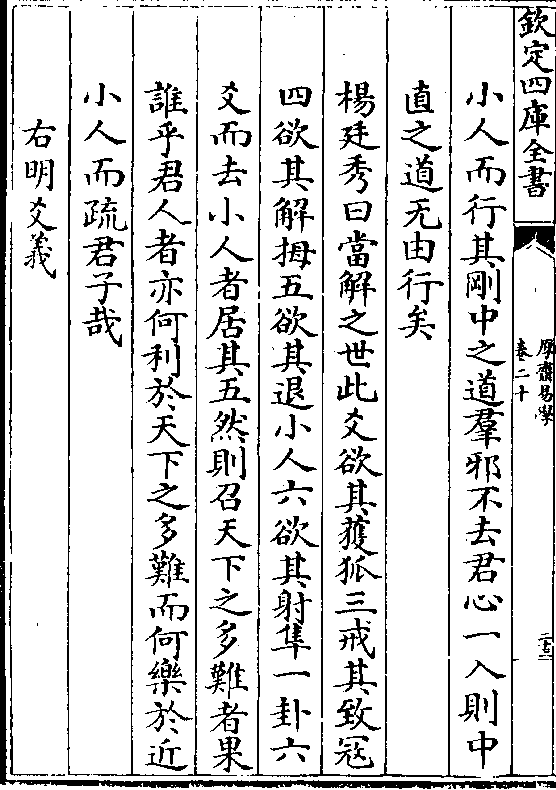 欽定四庫全書
厚齋易學
卷二十
小人而行其剛中之道羣邪不去君心一入則中
直之道无由行矣
楊廷秀曰當解之世此爻欲其獲狐三戒其致寇
四欲其解拇五欲其退小人六欲其射隼一卦六
爻而去小人者居其五然則召天下之多難者果
誰乎君人者亦何利於天下之多難而何樂於近
小人而疏君子哉
右明爻義